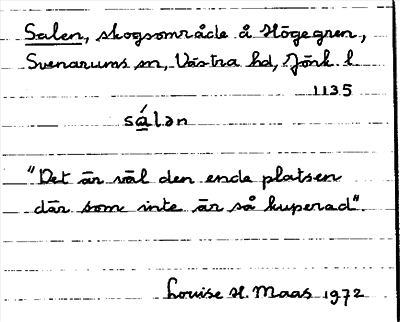 Salen, skogsområde å Högegren,
Svenarums sn, Västra hd, Jönk. l
1135
sálən
"Det är väl den enda platsen
där som inte är så kuperad".
Louise H. Maas 1972